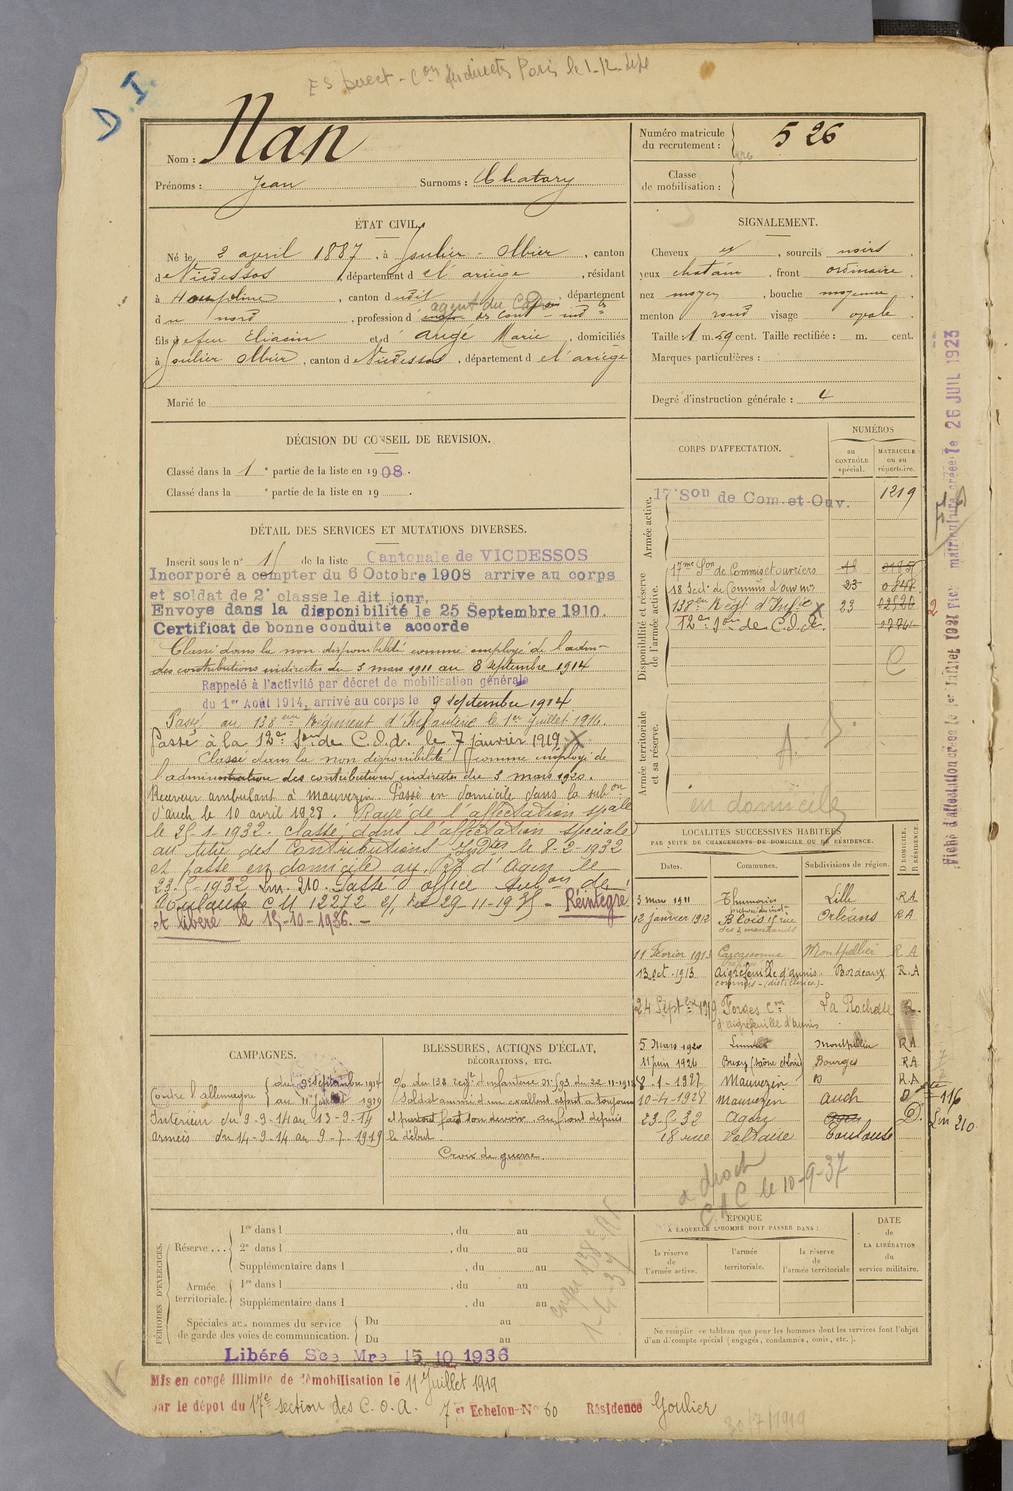 D. I.
Nom : Nan
Prénoms : Jean Surnoms : Chatary
Numéro matricule
du recrutement : 526
Classe
de mobilisation :
ÉTAT CIVIL.
Né le 2 april 1887, à Goulier - Olbier, canton
de Vicdessos, département d e l'ariège, résidant
à Houplines, canton d udit, département
d u nord, profession d agent du
fils de feu Eliacin et d augé Marie, domiciliés
à Goulier Olbier, canton d e Vicdessos, département d e l'ariège
Marié le
SIGNALEMENT.
Cheveux et, sourcils noirs,
yeux chatain, front ordinaire,
nez moyen, bouche moyenne,
menton rond visage ovale.
Taille : 1 m. 59 cent. Taille rectifiée : m. cent.
Marques particulières :
Degré d'instruction générale : 4
DÉCISION DU CONSEIL DE REVISION.
Classé dans la 1e partie de la liste en 1908.
Classé dans la e partie de la liste en 19 .
DÉTAIL DES SERVICES ET MUTATIONS DIVERSES.
Inscrit sous le n° de la liste Cantonale de VICDESSOS
Incorporé a compter du 6 Octobre 1908 arrive au corps
et soldat de 2e classe le dit jour.
Envoye dans la disponibilité le 25 Septembre 1910.
Certificat de bonne conduite accorde
Classé dans la non disponibilité comme employé de l'admon
des contributions indirectes du 3 mars 1911 au 8 septembre 1914
Rappelé à l'activité par décret de mobilisation générale
du 1er Août 1914, arrivé au corps le 9 septembre 1914.
Passé au 138eme Régiment d'Infanterie le 1er juillet 1916.
Passé à la 12e Son de C.O.A. le 7 janvier 1919 X
Classé dans la non disponibilité comme employé de
l'administration des contributions indirectes du 3 mars 1920.
Receveur ambulant à Mauvezin. Passé en domicile dans la subon
d'auch le 10 avril 1928. Rayé de l'affectation spale
le 25-1-1932. classé dans l'affectation spéciale
au titre des Contributions Indtes le 8-2-1932
et passé en domicile au d'Agen le
23-5-1932 Lm. 210. Passé d'office subon de
Toulouse C M 12272 du 29-11-1935 - Réintégré
et libéré le 15-10-1936. -
CORPS D'AFFECTATION.
NUMÉROS
au
CONTRÔLE
spécial.
MATRICULE
ou au
répertoire.
Armée active.
17e Son de Com. et Ouv. 1219
Disponibilité et réserve
de l'armée active.
17me Son de Commis et ouvriers
18 Secton de Commis et ouvrs 23
138eme Régt d'Infie X 23
12e Son de C.O.A.
C
Armée territoriale
et sa réserve.
en domicile
LOCALITÉS SUCCESSIVES HABITÉES
PAR SUITE DE CHANGEMENTS DE DOMICILE OU DE RÉSIDENCE.
Dates. Communes. Subdivisions de région. D DOMICILE. R RÉSIDENCE.
3 mars 1911 Thumeries Lille R A
12 janvier 1912 Blois 15 rue Orléans R A
11 Février 1913 Carcassonne Montpellier R A
13 oct. 1913 Aigrefeuille d'aunis Bordeaux R.A
24 Septbre 1919 Forges Cne La Rochelle R.
d'aigrefeuille d'aunis
5 Mars 1920 Montpellier RA
11 Juin 1924 Buxy (Saône et Loire) Bourges RA
8-1-1927 Mauvezin R.A
10-4-1928 Mauvezin Auch D
23-5-32 Agen D.
18 rue Voltaire Toulouse
116
Lm 210
CAMPAGNES.
Contre l'allemagne du 9 Septembre 1914
au 11 juillet 1919
Intérieur du 9-9-14 au 13-9-14
armées du 14-9-14 au 9-7-1919
BLESSURES, ACTIONS D'ÉCLAT,
DÉCORATIONS, ETC.
% du 138 Regt d'infanterie du 22-11-1918
Soldat animé d'un excellent esprit a toujours
et partout fait son devoir au front depuis
le début.
Croix de guerre.
C A C le 10-9-37
PÉRIODES D'EXERCICES.
Réserve...
1re dans l , du au
2e dans l , du au
Supplémentaire dans l , du au
Armée
territoriale.
1re dans l , du au
Supplémentaire dans l , du au
Spéciales aux hommes du service
de garde des voies de communication.
Du au
Du au
ÉPOQUE
À LAQUELLE L'HOMME DOIT PASSER DANS :
la réserve
de
l'armée active.
l'armée
territoriale.
la réserve
de
l'armée territoriale
DATE
de
LA LIBÉRATION
du
service militaire.
Ne remplir ce tableau que pour les hommes dont les services font l'objet
d'un décompte spécial (engagés, condamnés, omis, etc.).
Libéré Sce Mre 15 10 1936
Mis en congé illimité de démobilisation le 11 Juillet 1919
par le dépôt du 17e section des C.O.A. 7e Echelon N° 60 Résidence Goulier
30/7/1919